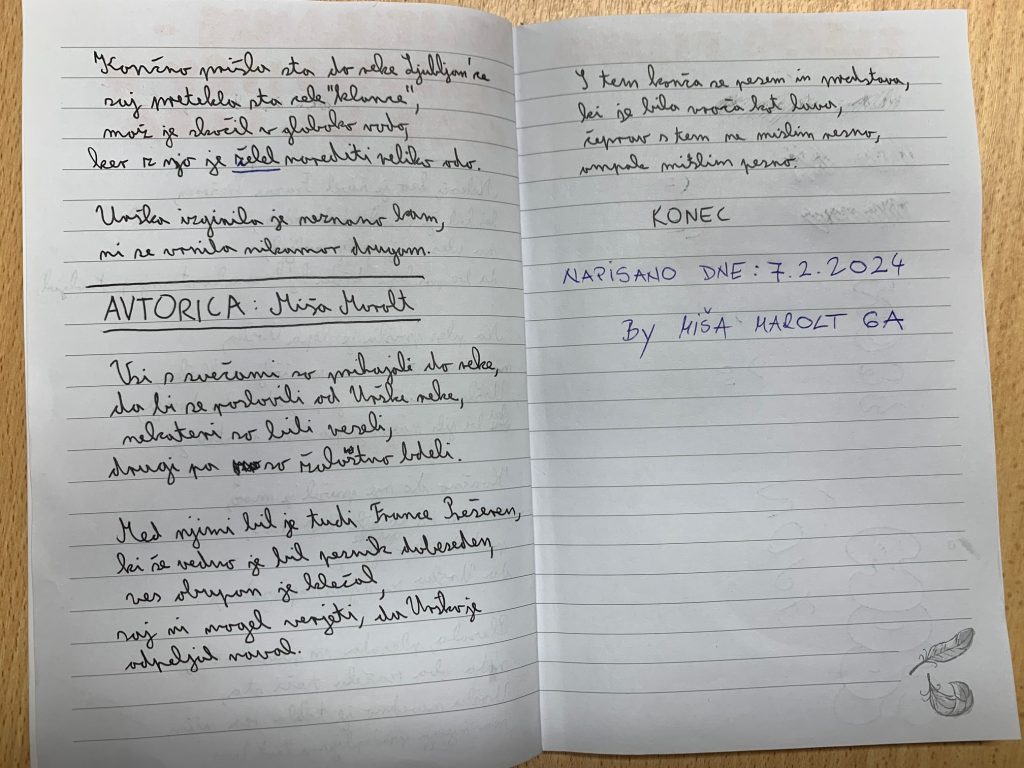 Končno prišla sta do reke Ljubljan'ce
saj pretekla sta cele "klance",
mož je skočil v globoko vodo,
ker z njo je želel narediti veliko vdo.
Urška izginila je neznano kam,
ni se vrnila nikamor drugam.
AVTORICA: Miša Marolt
Vsi s svečami so prihajali do reke,
da bi se poslovili od Urške neke,
nekateri so bili veseli,
drugi pa so žalostno bdeli.
Med njimi bil je tudi France Prešeren,
ki še vedno je bil pesnik dobeseden,
ves obupan je klečal,
saj ni mogel verjeti, da Urško je
odpeljal naval.
S tem konča se pesem in predstava,
ki je bila vroča kot lava,
čeprav s tem ne mislim resno,
ampak mislim pesno.
KONEC
NAPISANO DNE: 7.2.2024
By MIŠA MAROLT 6A